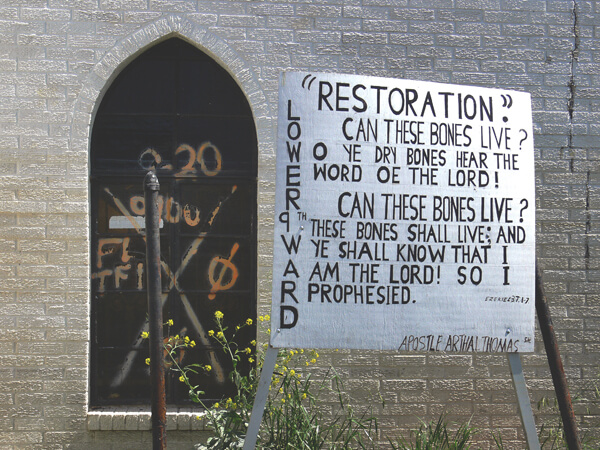 "RESTORATION"?
CAN THESE BONES LIVE?
O YE DRY BONES HEAR THE
WORD OE THE LORD!
CAN THESE BONES LIVE?
THESE BONES SHALL LIVE: AND
YE SHALL KNOW THAT I
AM THE LORD! SO I
PROPHESIED.
LOWER 9TH WARD
APOSTLE ARTHAI THOMAS
9-20
0900
FL
TF1